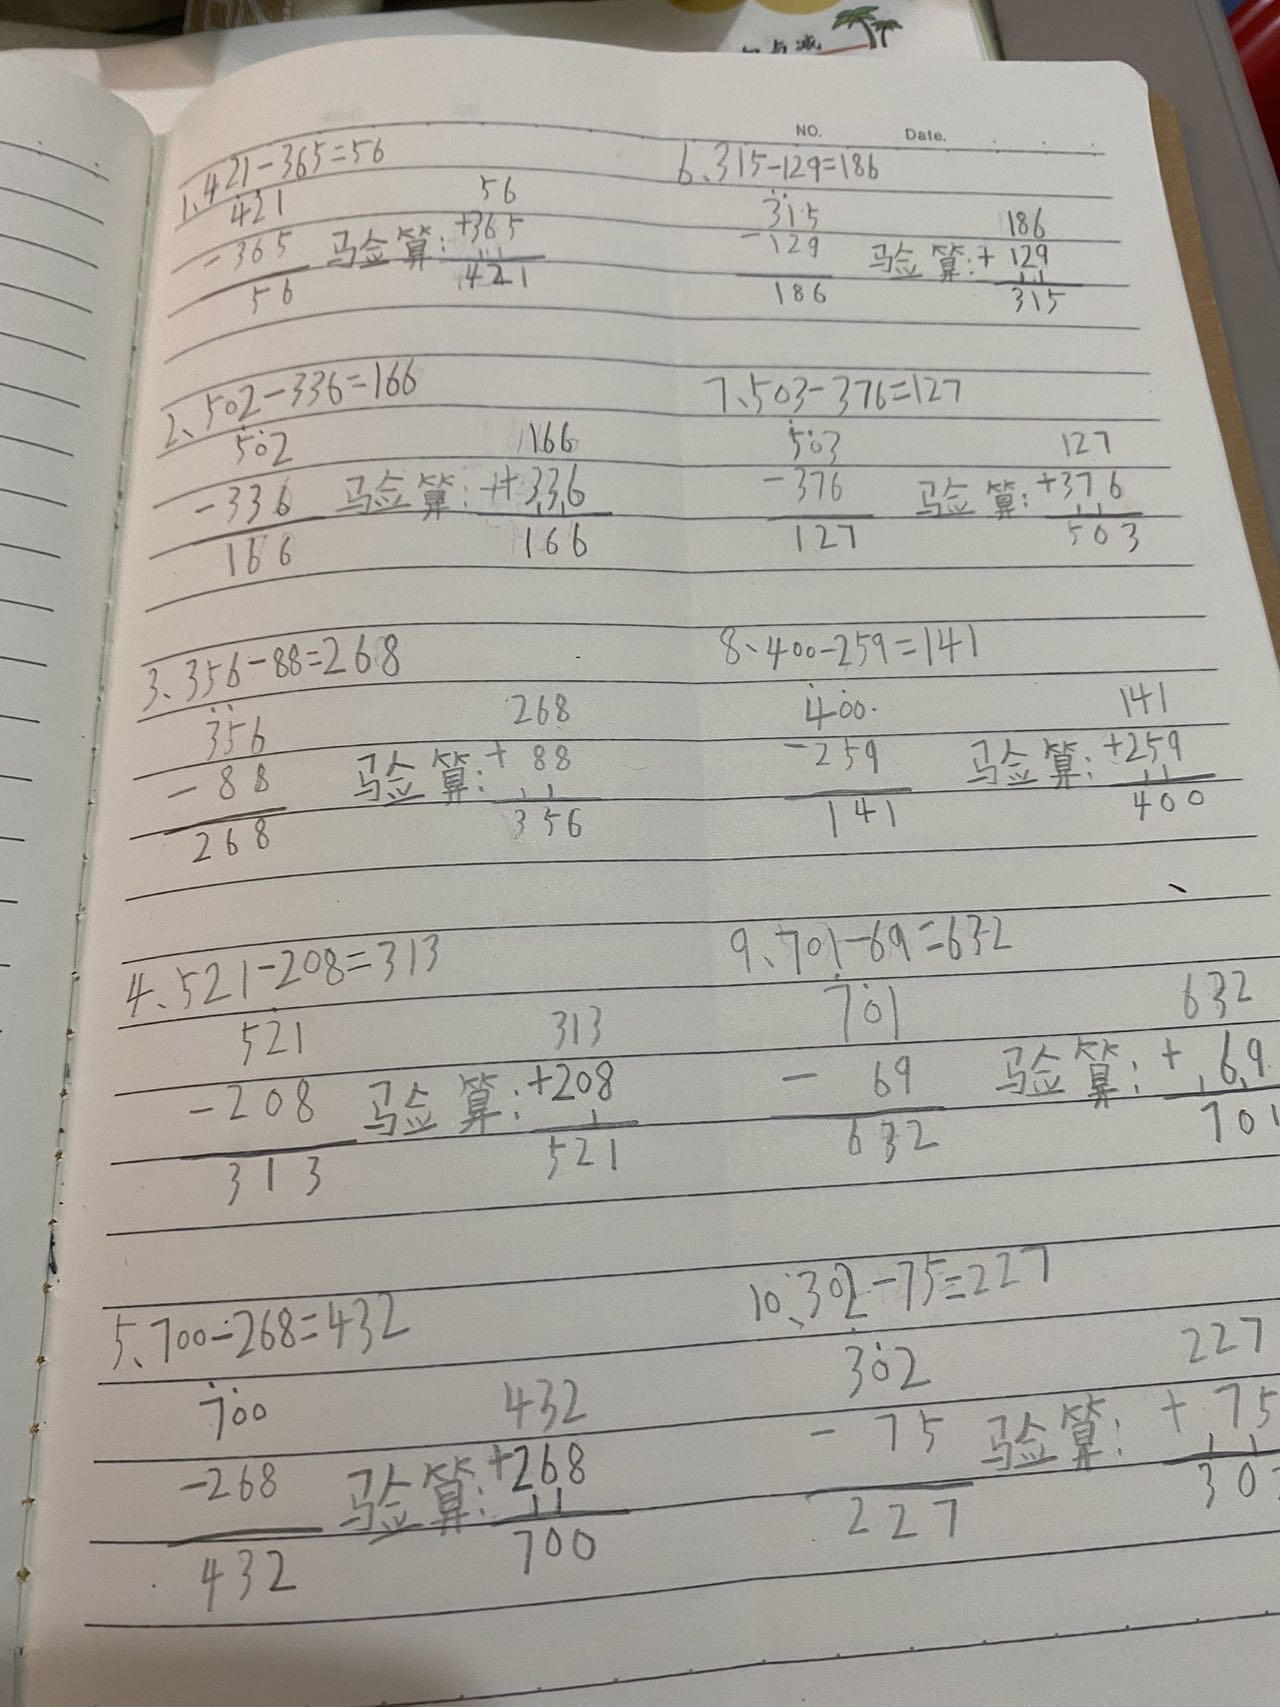 与减
NO. Date.
1、421-365=56
421 56
-365 验算: +365
56 421
2、502-336=166
502 166
-336 验算: +336
166 166
3、356-88=268
356 268
-88 验算: + 88
268 356
4、521-208=313
521 313
-208 验算: +208
313 521
5、700-268=432
700 432
-268 验算: +268
432 700
6、315-129=186
315 186
-129 验算: + 129
186 315
7、503-376=127
503 127
-376 验算: +376
127 503
8、400-259=141
400 141
-259 验算: +259
141 400
9、701-69=632
701 632
- 69 验算: + 69
632 701
10、302-75=227
302 227
- 75 验算: + 75
227 30